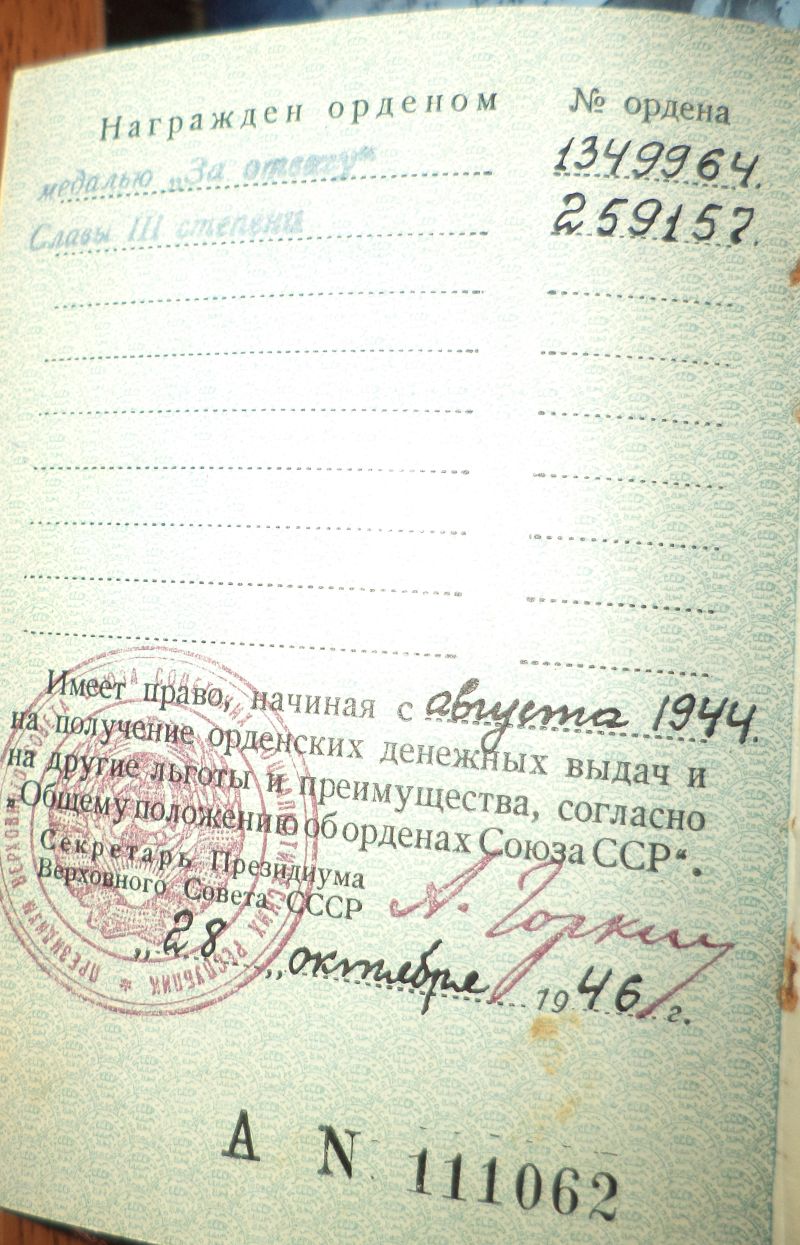 Награжден орденом № ордена
медалью „За отвагу" 1349964.
Славы III степени 259157.
Имеет право, начиная с августа 1944.
на получение орденских денежных выдач и
на другие льготы и преимущества, согласно
„Общему положению об орденах Союза ССР".
Секретарь Президиума
Верховного Совета СССР А. Горкин
„28„ октября 1946 г.
ПРЕЗИДИУМ ВЕРХОВНОГО СОВЕТА СОЮЗА СОВЕТСКИХ СОЦИАЛИСТИЧЕСКИХ РЕСПУБЛИК *
А N 111062